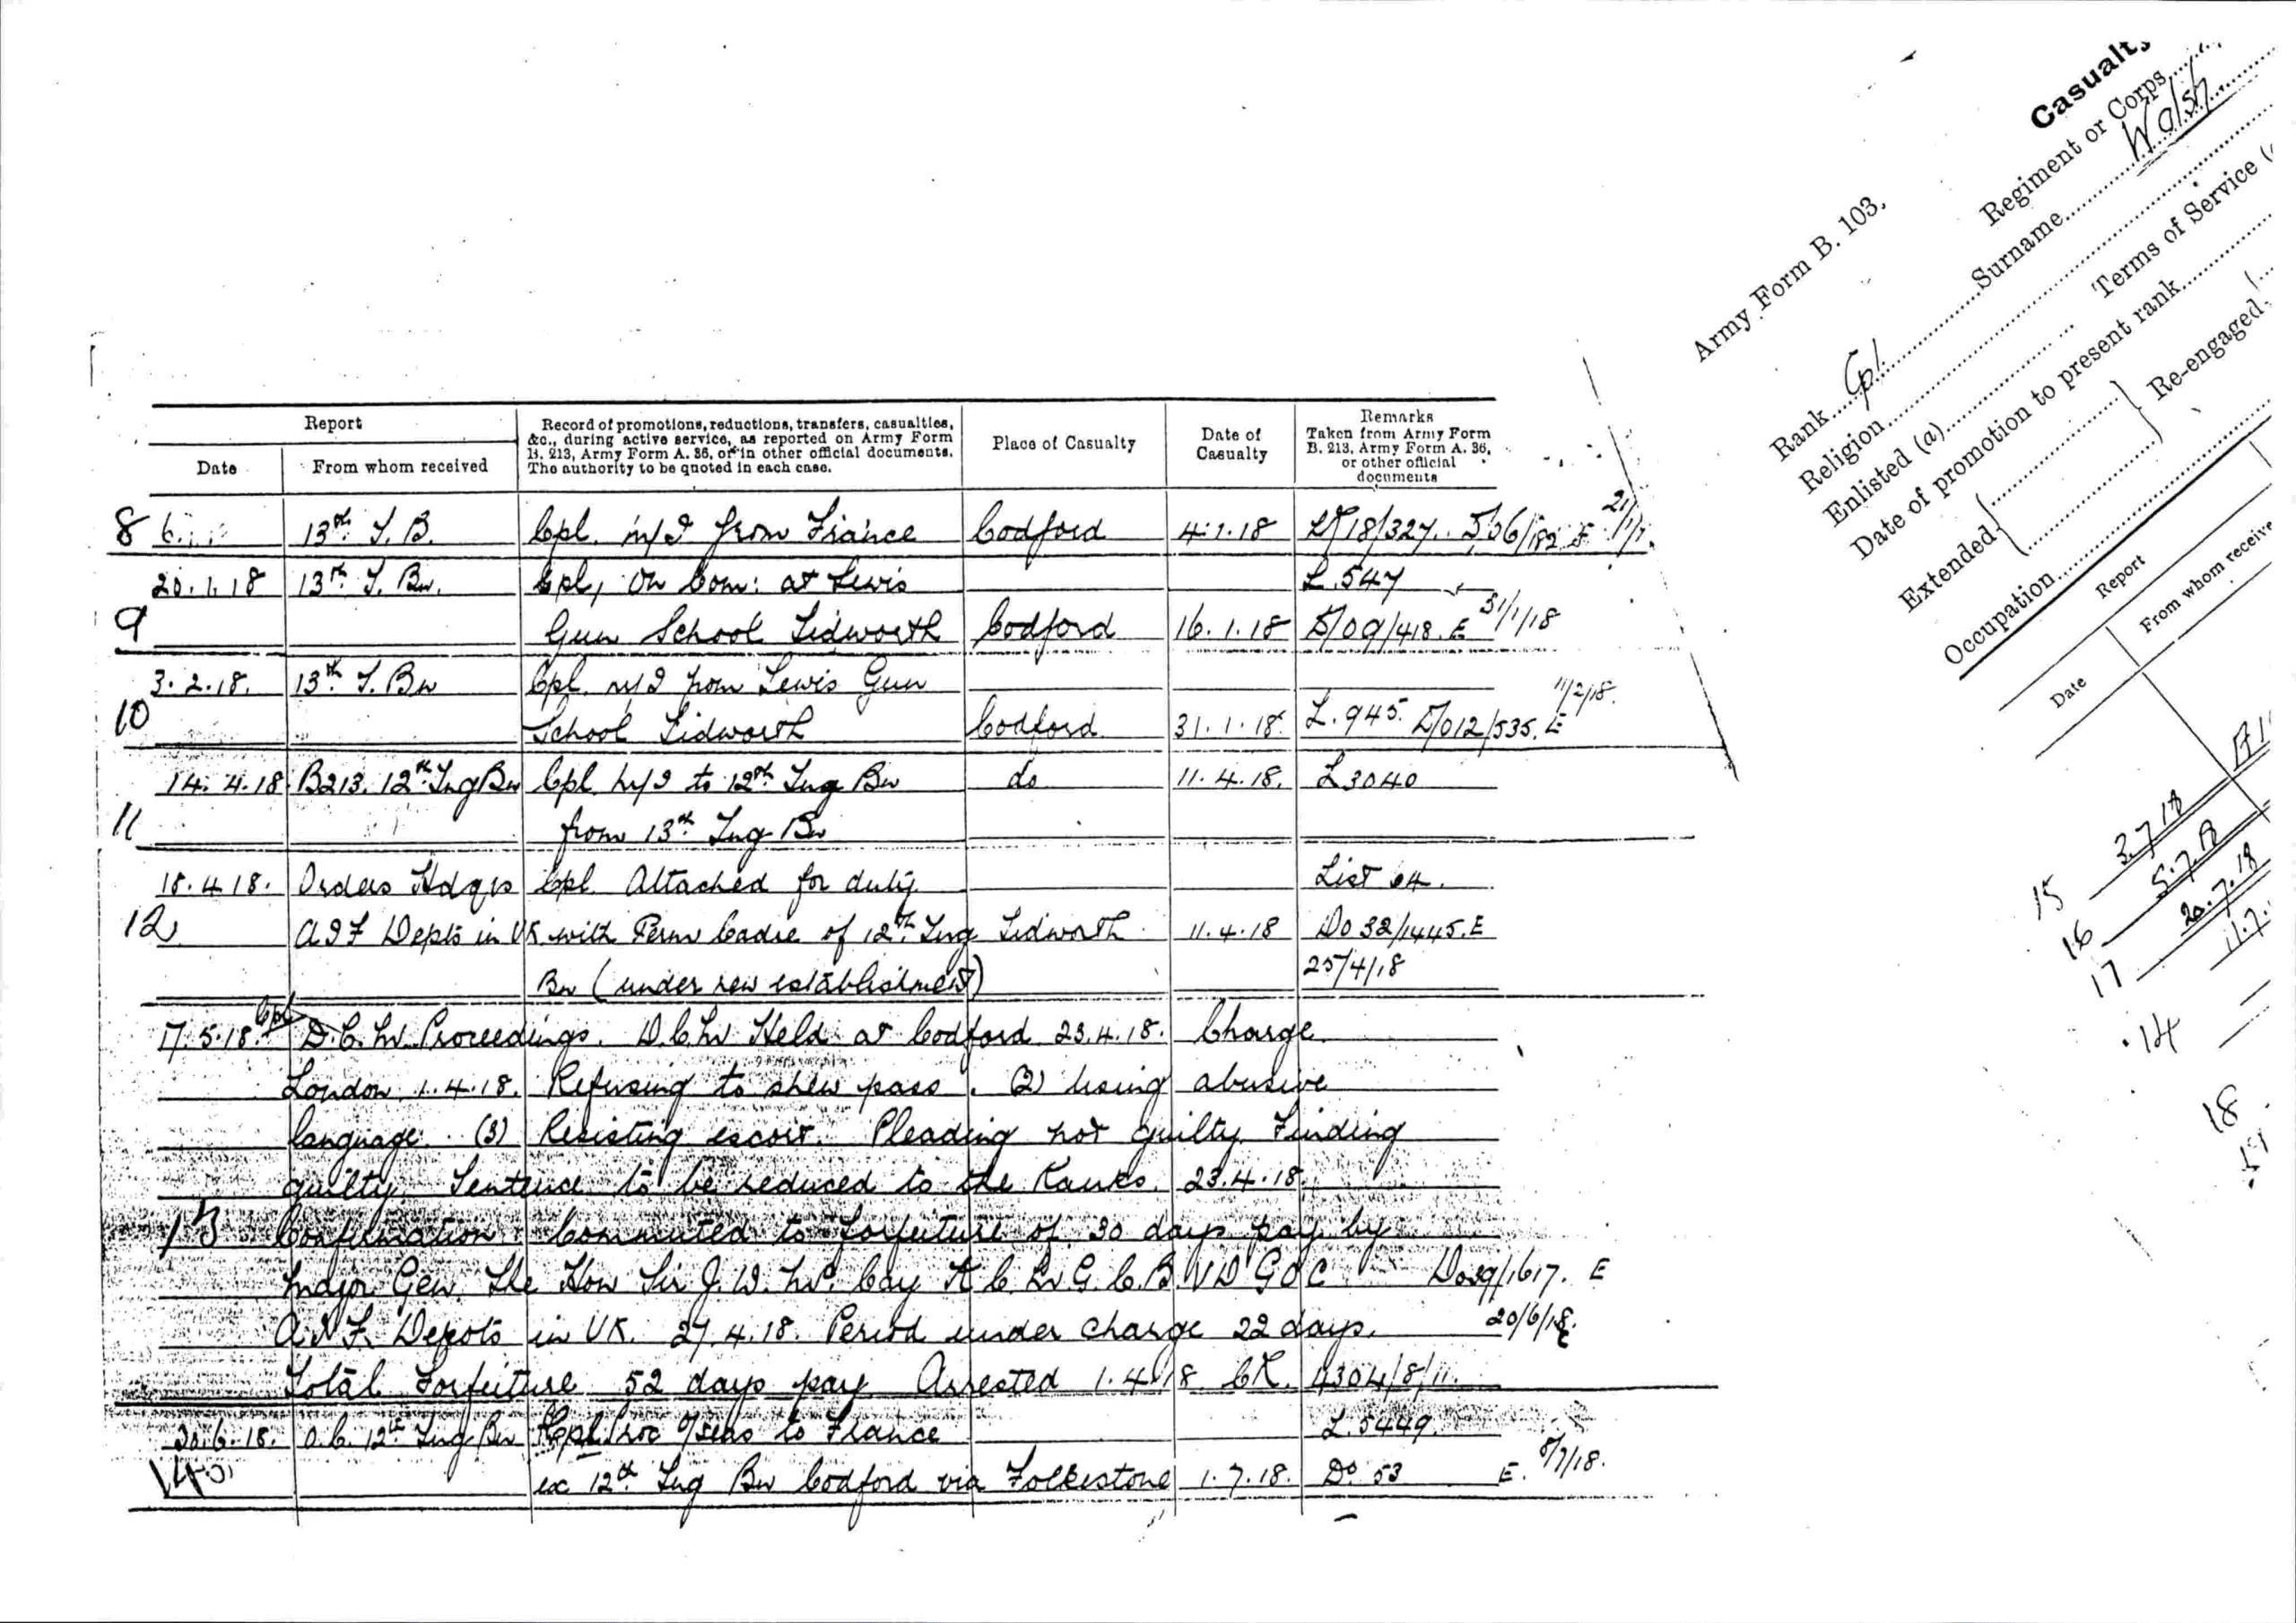 Report
Record of promotions, reductions, transfers, casualties, &c., during active service, as reported on Army Form B. 213, Army Form A. 36, or in other official documents. The authority to be quoted in each case.
Place of Casualty
Date of Casualty
Remarks Taken from Army Form B. 213, Army Form A. 36, or other official documents
Date
From whom received
8 13th T. B. Cpl. m/I from France Codford 4.1.18
20.1.18 13th T. Bn. Cpl, On Com: at Lewis L.547
9 Gun School Tidworth Codford 16.1.18 31/1/18
3.2.18. 13th T. Bn Cpl. m/I from Lewis Gun 11/2/18.
10 School Tidworth Codford 31.1.18. L.945. D/012/535. E
14.4.18 B213. 12th Tng Bn Cpl. M/I to 12th Tng Bn do 11.4.18. L3040
11 from 13th Tng Bn
18.4.18. Orders Hdqrs Cpl. Attached for duty List 64.
12 AIF Depts in UK with Perm Cadre of 12th Tng Tidworth 11.4.18 Do 32/1445. E
Bn (under new establishment) 25/4/18
17.5.18. Cpl D.C.M. Proceedings. D.C.M Held at Codford 23.4.18. Charge
London 1.4.18. Refusing to shew pass. (2) Using abusive
language. (3) Resisting escort. Pleading not guilty. Finding
guilty. Sentence to be reduced to the Ranks. 23.4.18.
13 Confirmation. Commuted to forfeiture of 30 days pay by
Major Gen. The Hon Sir J. W. McCay K.C.M.G. C.B. VD GOC E
A.I.F. Depots in UK. 27.4.18. Period under charge 22 days. 20/6/18.
Total Forfeiture 52 days pay. Arrested 1.4.18 4304/8/11.
30.6.18. O.C. 12th Tng Bn Cpl. Proc O/seas to France L.5449.
14 ex 12th Tng Bn Codford via Folkestone 1.7.18. Do 53 E. 8/7/18.
Casualty
Army Form B. 103.
Regiment or Corps
Rank Cpl. Surname Walsh
Religion
Enlisted (a) Terms of Service (
Date of promotion to present rank
Extended { } Re-engaged
Occupation
Report
Date From whom receive
15 3.7.18
16 5.7.18
17 20.7.18
14
18